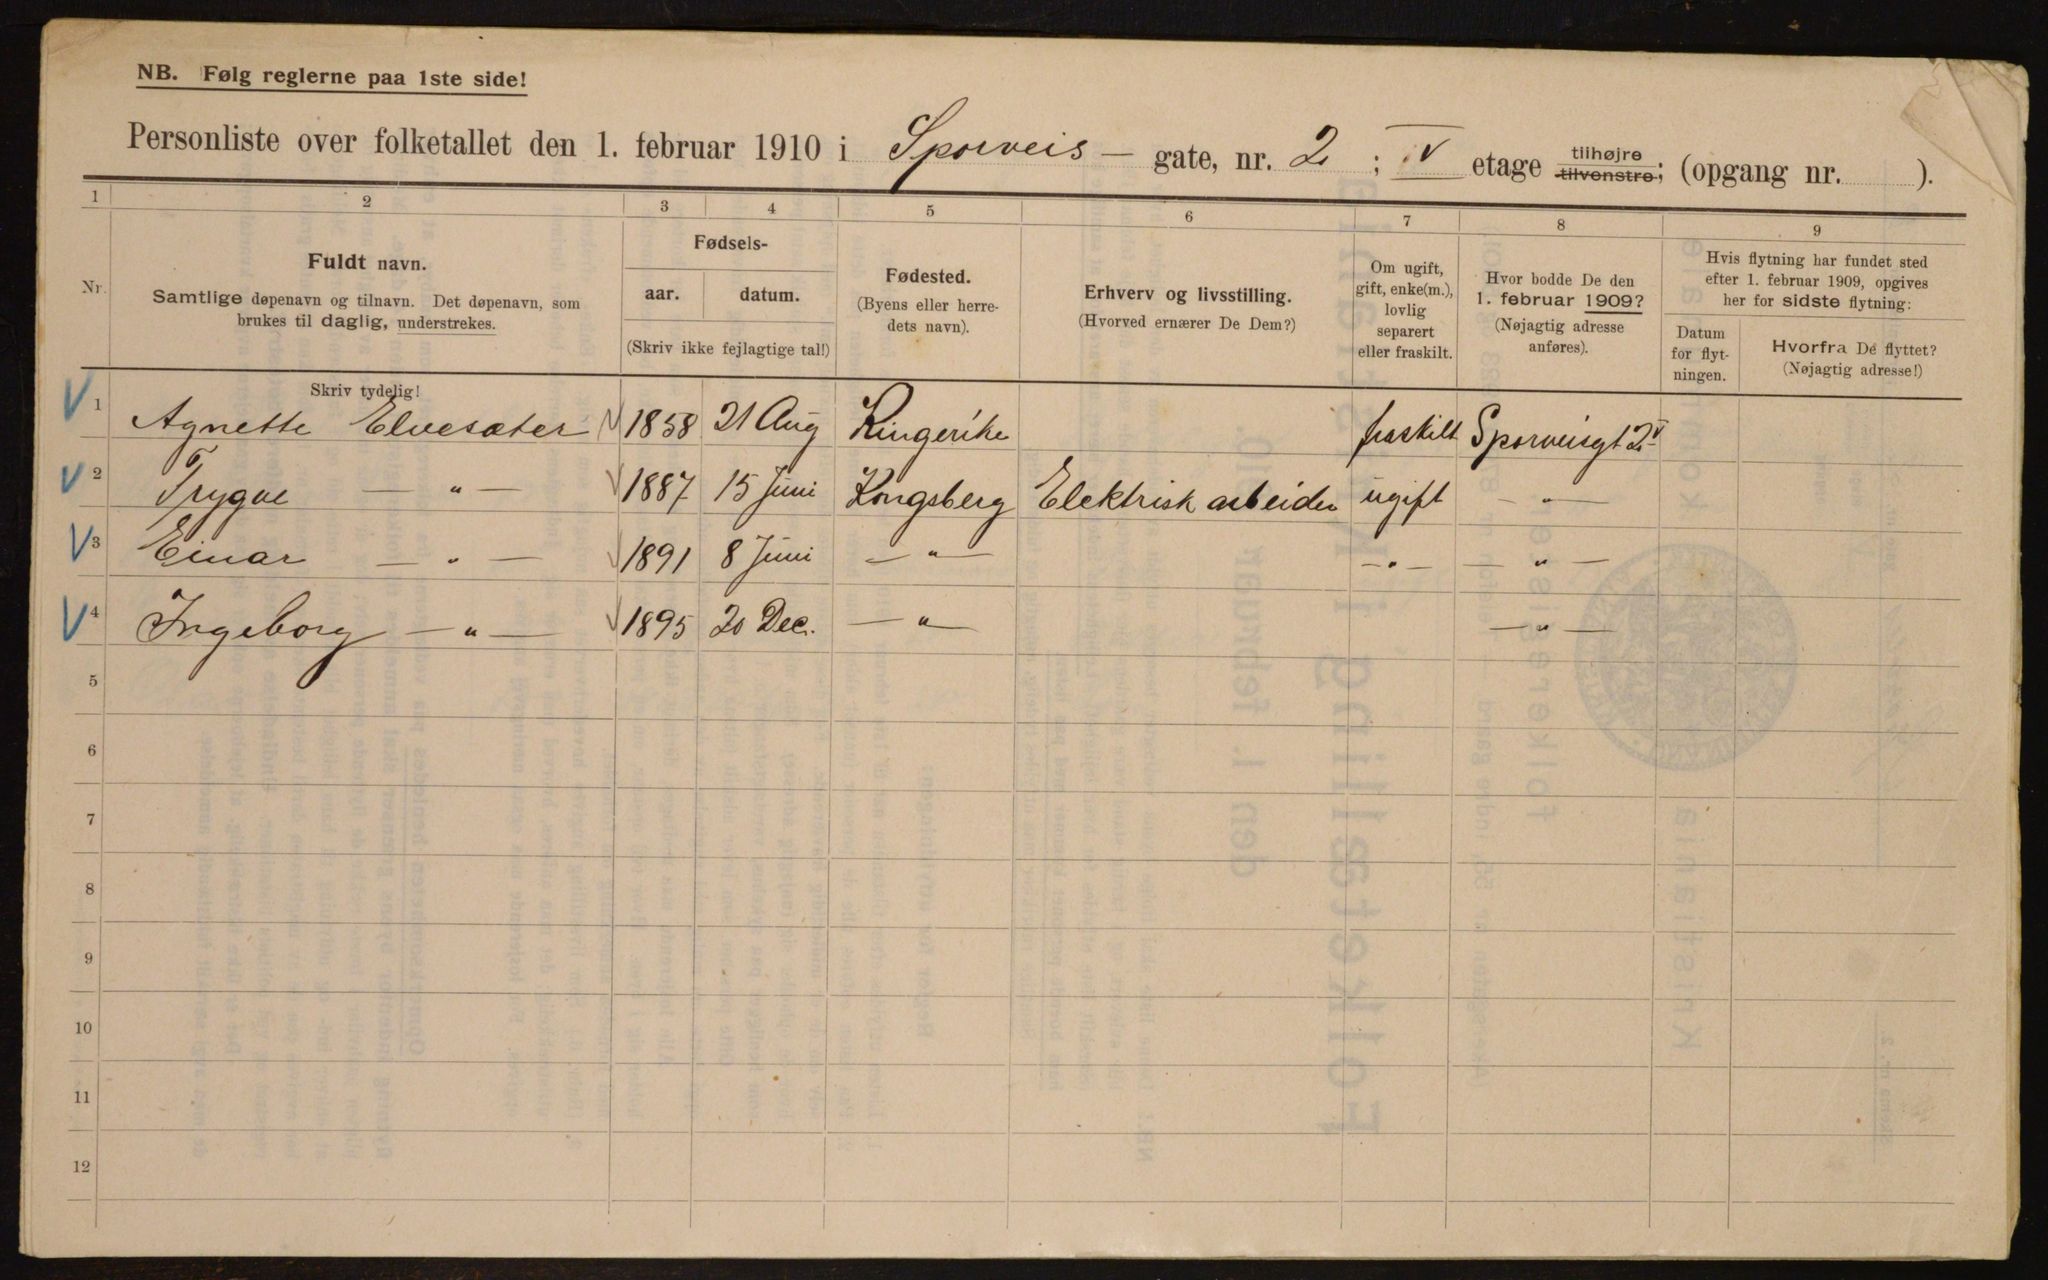 NB. Følg reglerne paa 1ste side!
Personliste over folketallet den 1. februar 1910 i Sporveis — gate, nr. 2 ; IV etage tilhøjre tilvenstre; (opgang nr. ).
1 2 3 4 5 6 7 8 9
Nr.
Fuldt navn.
Samtlige døpenavn og tilnavn. Det døpenavn, som
brukes til daglig, understrekes.
Fødsels-
aar. datum.
(Skriv ikke fejlagtige tal!)
Fødested.
(Byens eller herre-
dets navn).
Erhverv og livsstilling.
(Hvorved ernærer De Dem?)
Om ugift,
gift, enke(m.),
lovlig
separert
eller fraskilt.
Hvor bodde De den
1. februar 1909?
(Nøjagtig adresse
anføres).
Hvis flytning har fundet sted
efter 1. februar 1909, opgives
her for sidste flytning:
Datum
for flyt-
ningen.
Hvorfra De flyttet?
(Nøjagtig adresse!)
Skriv tydelig!
1 Agnette Elvesæter 1858 21 Aug Ringerike fraskilt Sporveisgt 2 V
2 Trygve — " — 1887 15 Juni Kongsberg Elektrisk arbeider ugift — " —
3 Einar — " — 1891 8 Juni — " — — " — — " —
4 Ingeborg — " — 1895 20 Dec. — " — — " —
5
6
7
8
9
10
11
12